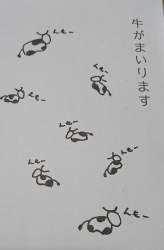 牛がまいります
んもー
んもー
んもー
んもー
んもー
んもー
んもー